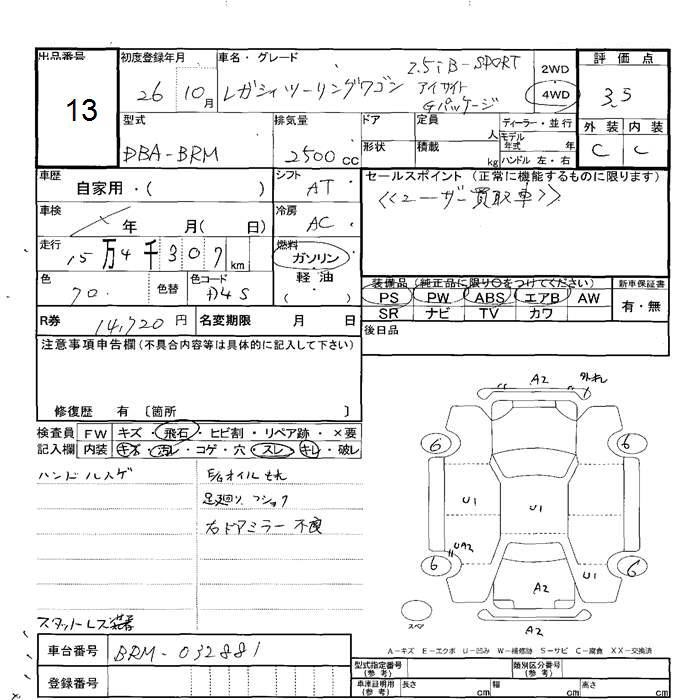 出品番号 初度登録年月 車名・グレード 2.5i B-SPORT 2WD 評価点
13 26 10月 レガシィツーリングワゴン アイサイト 4WD 3.5
Gパッケージ
型式 排気量 ドア 定員 人 ディーラー・並行 外装 内装
DBA-BRM 2500cc 形状 積載 kg モデル年式 年 C C
ハンドル 左・右
車歴 自家用・( ) シフト AT セールスポイント (正常に機能するものに限ります)
<<ユーザー買取車>>
車検 年 月( 日) 冷房 AC
走行 15万4千307km 燃料 ガソリン
軽油
( )
色 70. 色替 色コード D4S
装備品 (純正品に限り○をつけてください) 新車保証書
PS PW ABS エアB AW 有・無
SR ナビ TV カワ
R券 14,720円 名変期限 月 日 後日品
注意事項申告欄 (不具合内容等は具体的に記入して下さい)
修復歴 有 〔箇所 〕
検査員 FW キズ・飛石・ヒビ割・リペア跡・×要
記入欄 内装 キズ・汚レ・コゲ・穴・スレ・キレ・破レ
ハンドルスレ E/gオイルもれ
足廻り、ショック
右ドアミラー不良
スタットレス装着
A2
6 6
U1 U1
UA2 U1
6 6
A2
スペア A2
A-キズ E-エクボ U-凹み W-補修跡 S-サビ C-腐食 XX-交換済
車台番号 BRM-032881
登録番号
型式指定番号 (参考) 類別区分番号 (参考)
車庫証明用 (参考) 長さ cm 幅 cm 高さ cm